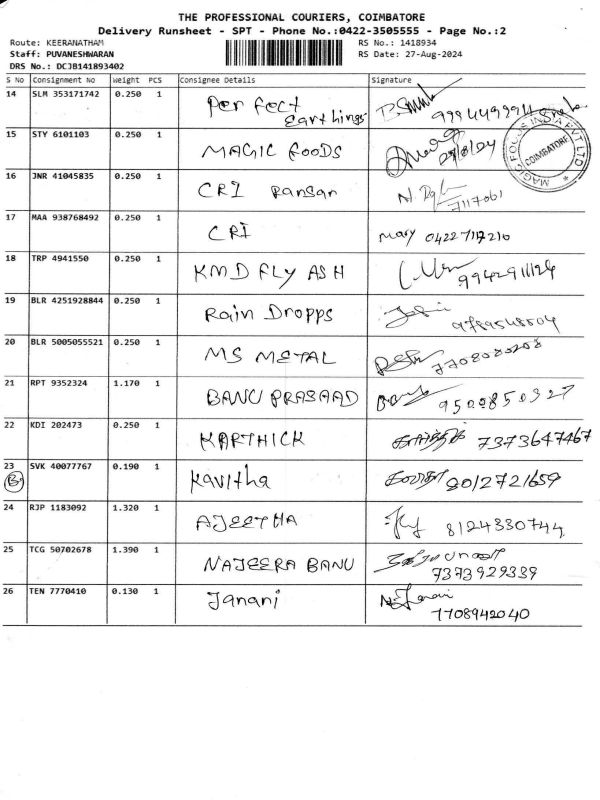 THE PROFESSIONAL COURIERS, COIMBATORE
Delivery Runsheet - SPT - Phone No.:0422-3505555 - Page No.:2
Route: KEERANATHAM RS No.: 1418934
Staff: PUVANESHWARAN RS Date: 27-Aug-2024
DRS No.: DCJB141893402
S No Consignment No Weight PCS Consignee Details Signature
14 SLM 353171742 0.250 1 Perfect
Earthings
15 STY 6101103 0.250 1 MAGIC FOODS 27/8/24
MAGIC FOCUS INDIA PVT LTD * COIMBATORE
16 JNR 41045835 0.250 1 CRI Pansan
7117061
17 MAA 938768492 0.250 1 CRI Mary 04227117210
18 TRP 4941550 0.250 1 KMD FLY ASH 9942911124
19 BLR 4251928844 0.250 1 Rain Dropps 9789548504
20 BLR 5005055521 0.250 1 MS METAL 7708080208
21 RPT 9352324 1.170 1 BANU PRASAAD 9500850327
22 KDI 202473 0.250 1 KARTHICK கார்த்திக் 7373647467
23 SVK 40077767 0.190 1 Kavitha கவிதா 9012721659
B
24 RJP 1183092 1.320 1 AJEETHA 8124330744
25 TCG 50702678 1.390 1 NAJEERA BANU
7373929339
26 TEN 7770410 0.130 1 Janani N. Janani
7708942040